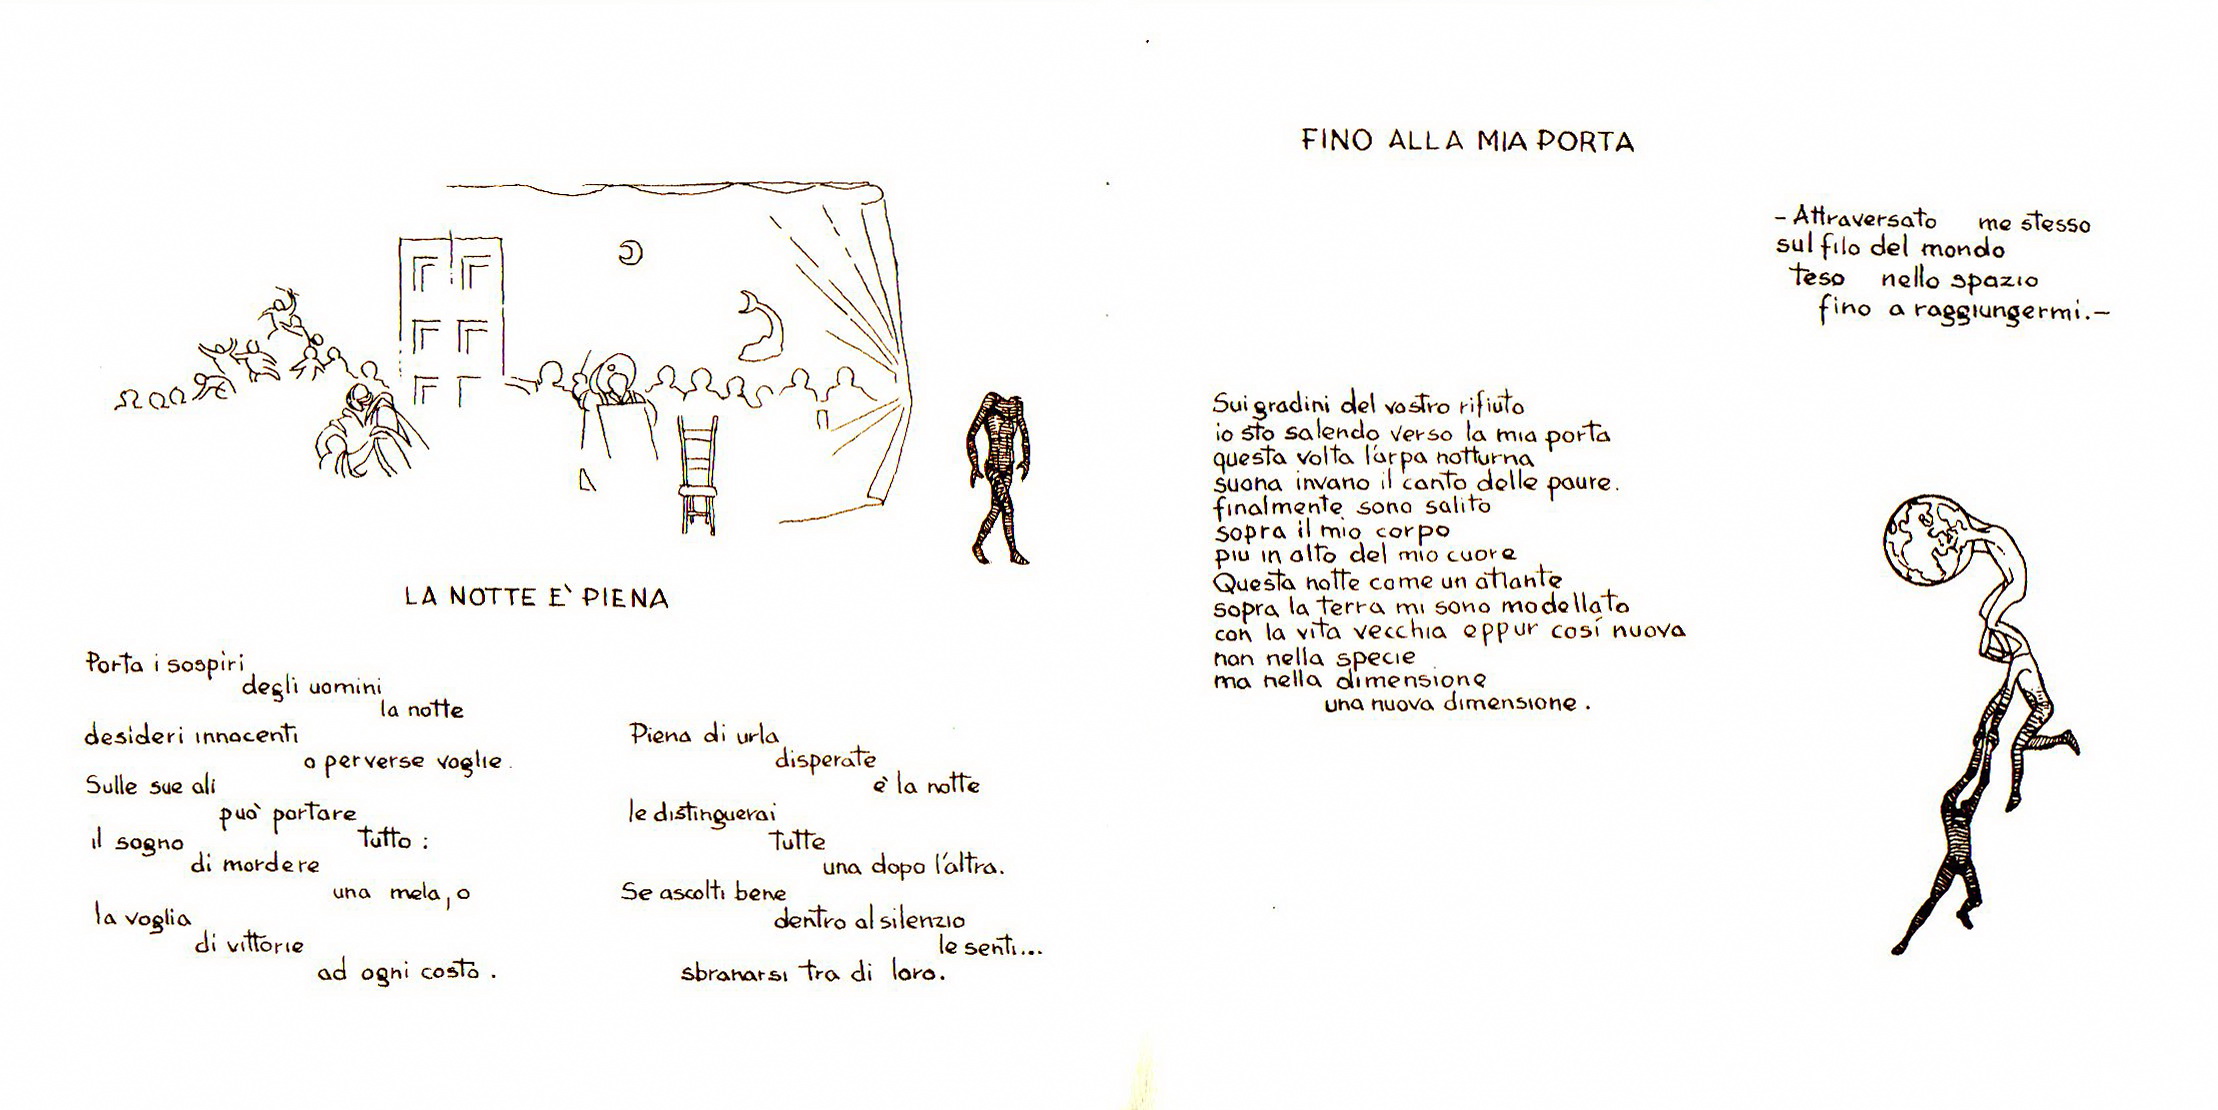 LA NOTTE E' PIENA
Porta i sospiri
degli uomini
la notte
desideri innocenti
o perverse voglie.
Sulle sue ali
può portare
tutto :
il sogno
di mordere
una mela, o
la voglia
di vittorie
ad ogni costo .
Piena di urla
disperate
è la notte
le distinguerai
tutte
una dopo l'altra.
Se ascolti bene
dentro al silenzio
le senti...
sbranarsi tra di loro.
FINO ALLA MIA PORTA
- Attraversato me stesso
sul filo del mondo
teso nello spazio
fino a raggiungermi. -
Sui gradini del vostro rifiuto
io sto salendo verso la mia porta
questa volta l'arpa notturna
suona invano il canto delle paure.
finalmente sono salito
sopra il mio corpo
piu in alto del mio cuore
Questa notte come un atlante
sopra la terra mi sono modellato
con la vita vecchia eppur cosí nuova
non nella specie
ma nella dimensione
una nuova dimensione .